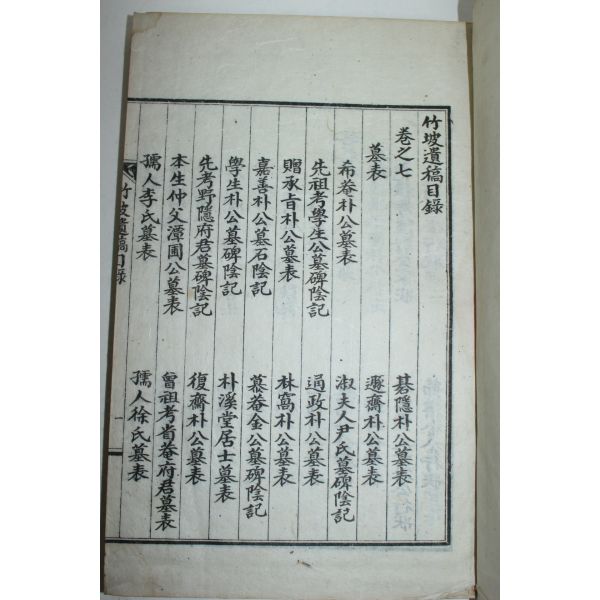 竹坡遺稿目錄
卷之七
墓表
希菴朴公墓表
碁隱朴公墓表
先祖考學生公墓碑陰記
遯齋朴公墓表
贈承旨朴公墓表
淑夫人尹氏墓碑陰記
嘉善朴公墓石陰記
通政朴公墓表
學生朴公墓碑陰記
林窩朴公墓表
先考野隱府君墓碑陰記
慕菴金公墓碑陰記
本生仲父潭圃公墓表
朴溪堂居士墓表
孺人李氏墓表
復齋朴公墓表
曾祖考省菴府君墓表
孺人徐氏墓表
竹坡遺稿目錄
一